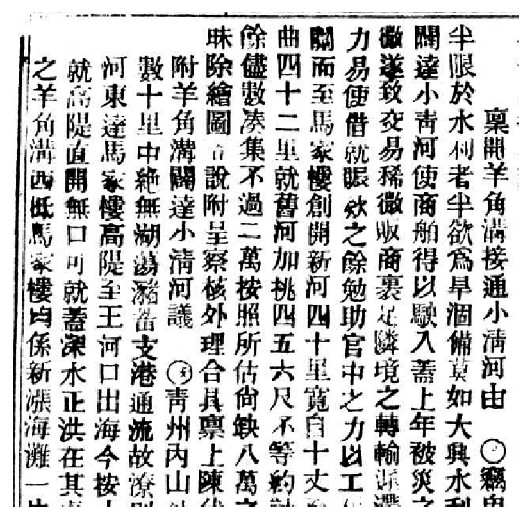 稟開羊角溝接通小淸河由 ○竊
半限於水利者半欲爲旱涸備莫如大興水利
開達小靑河使商舶得以駛入蓋上年被災之
遂致交易稀微販商裹足隣境之轉輸
力易使借就賑欵之餘勉助官中之力以工
而至馬家樓創開新河四十里寬自十丈
曲四十二里就舊河加挑四五六尺不等約
餘儘數湊集不過二萬按照所估尙缺八萬之
昧除繪圖 說附呈察核外理合具稟上陳
附羊角溝開達小淸河議 ○靑州內山
數十里中絶無湖蕩瀦蓄支港通流故潦則
河東達馬家樓高隄至王河口出海今按
就高隄直開無口可就蓋深水正洪在其
之羊角溝西抵馬家樓均係新漲海灘一